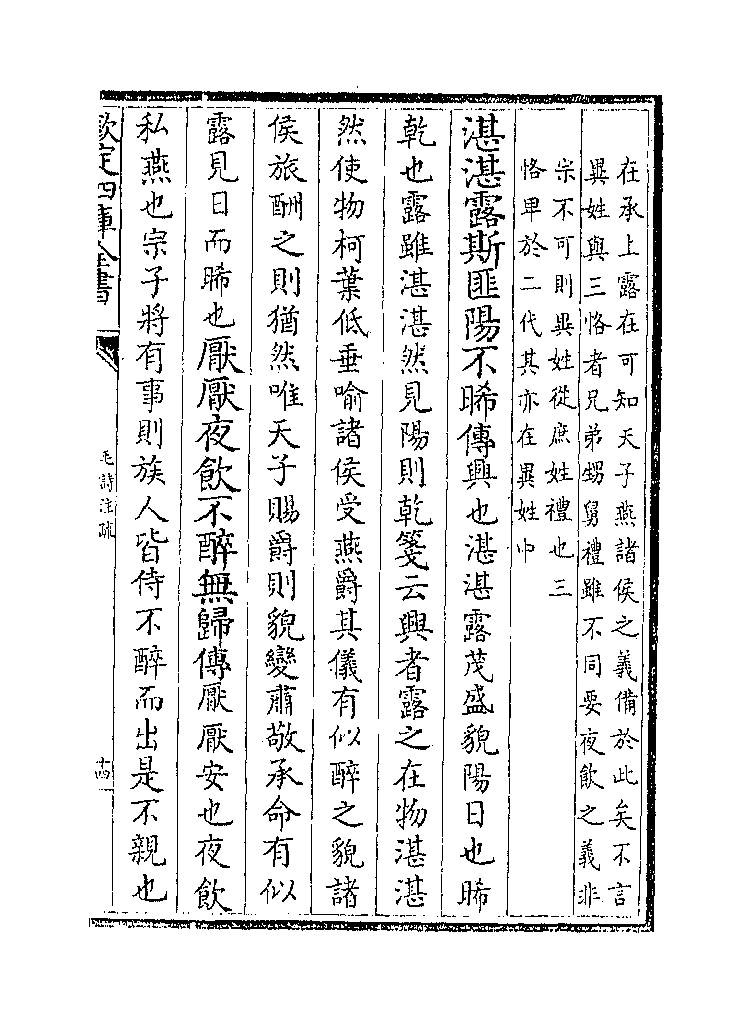 在承上露在可知天子燕諸侯之義備於此矣不言
異姓與三恪者兄弟甥舅禮雖不同要夜飲之義非
宗不可則異姓從庶姓禮也三
恪卑於二代其亦在異姓中
湛湛露斯匪陽不晞傳興也湛湛露茂盛貌陽日也晞
乾也露雖湛湛然見陽則乾箋云興者露之在物湛湛
然使物柯葉低垂喻諸侯受燕爵其儀有似醉之貌諸
侯旅酬之則猶然唯天子賜爵則貌變肅敬承命有似
露見日而晞也厭厭夜飲不醉無歸傳厭厭安也夜飲
私燕也宗子將有事則族人皆侍不醉而出是不親也
欽定四庫全書
毛詩注疏
十四